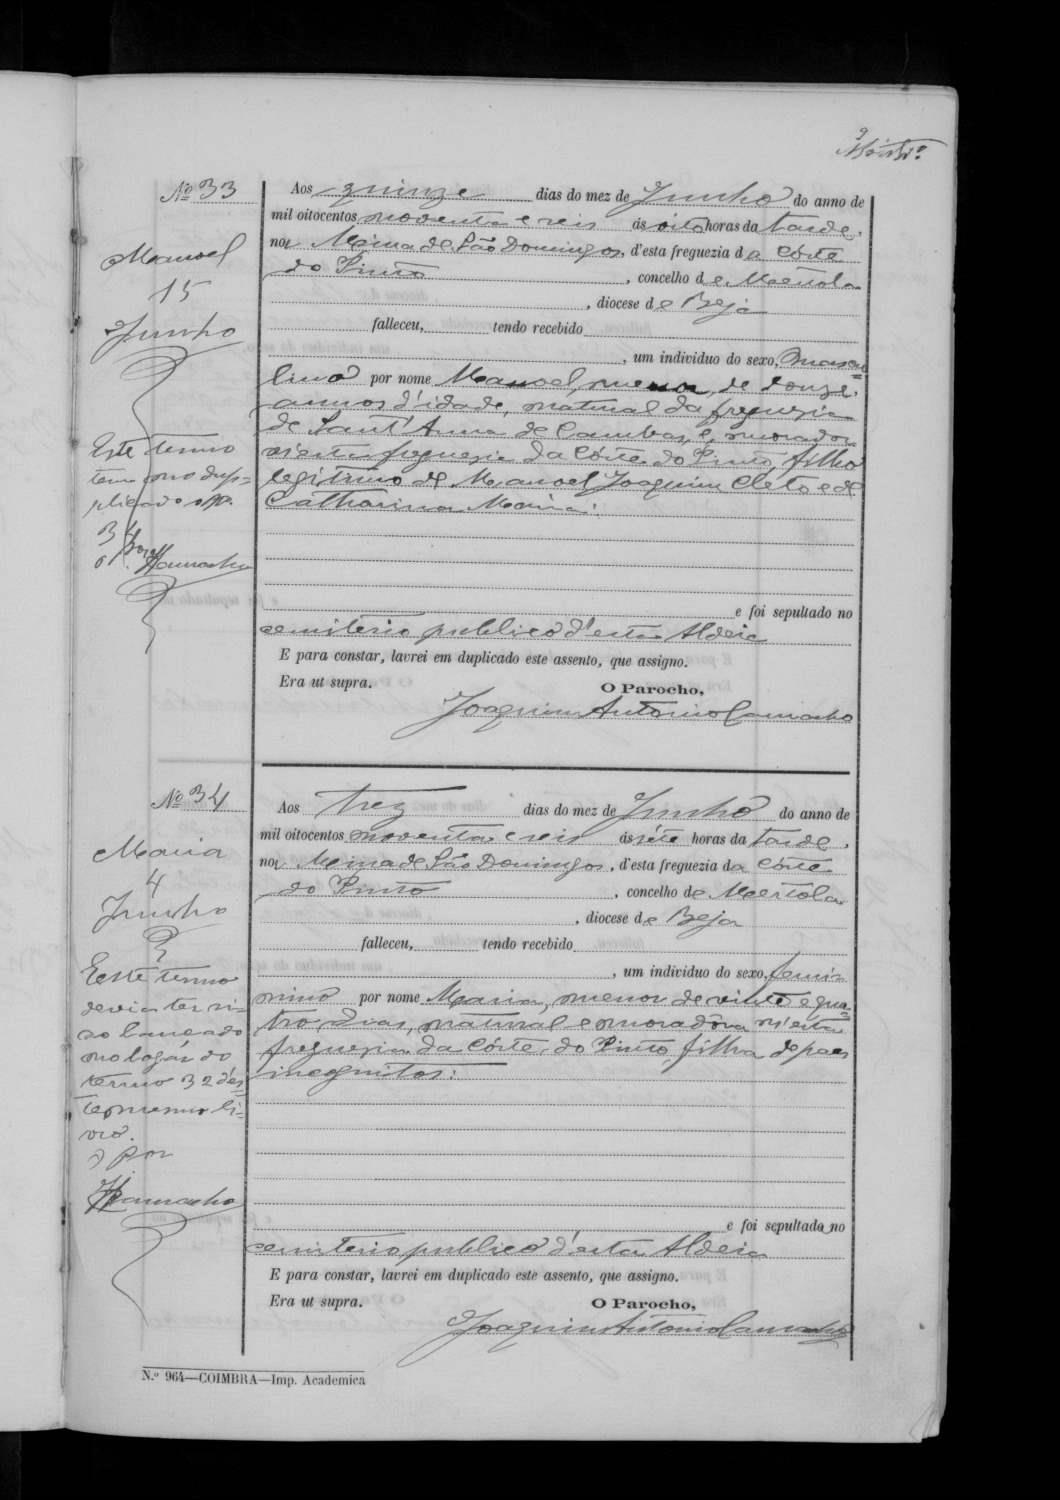 9
Nº 33
Manoel
15
Junho
Este termo
tem no du-
plicado o nº
34
O Por Hamacho
Aos quinze dias do mez de Junho do anno de
mil oitocentos noventa e seis ás oito horas da tarde,
na Mina de São Domingos, d'esta freguezia da Córte
do Pinto, concelho de Mertola
, diocese de Beja
falleceu, tendo recebido
, um individuo do sexo, mascu-
lino por nome Manoel, menor, de doze
annos d'idade, natural da freguezia
de Sant'Anna de Cambas, e morador
n'esta freguezia da Córte do Pinto, filho
legitimo de Manoel Joaquim Cleto e de
Catharina Maria.
e foi sepultado no
cemiterio publico d'esta Aldeia
E para constar, lavrei em duplicado este assento, que assigno.
Era ut supra.
O Parocho,
Joaquim Antonio Camacho
Nº 34
Maria
4
Junho
Este termo
devia ter si-
do lançado
no logár do
termo 32 d'es-
te mesmo li-
vro.
O Por
Hamacho
Aos trez dias do mez de Junho do anno de
mil oitocentos noventa e seis ás séte horas da tarde,
na Mina de São Domingos, d'esta freguezia da Córte
do Pinto, concelho de Mertola
, diocese de Beja
falleceu, tendo recebido
, um individuo do sexo, femi-
nino por nome Maria, menor de vinte e qua-
tro dias, natural e moradora n'esta
freguezia da Córte do Pinto filha de paes
incognitos.
e foi sepultada no
cemiterio publico d'esta Aldeia
E para constar, lavrei em duplicado este assento, que assigno.
Era ut supra.
O Parocho,
Joaquim Antonio Camacho
N.º 964—COIMBRA—Imp. Academica